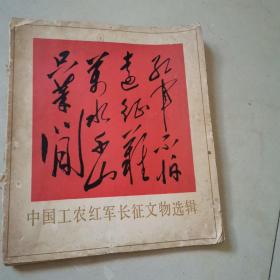 红军不怕
远征难
万水千山
只等闲
中国工农红军长征文物选辑